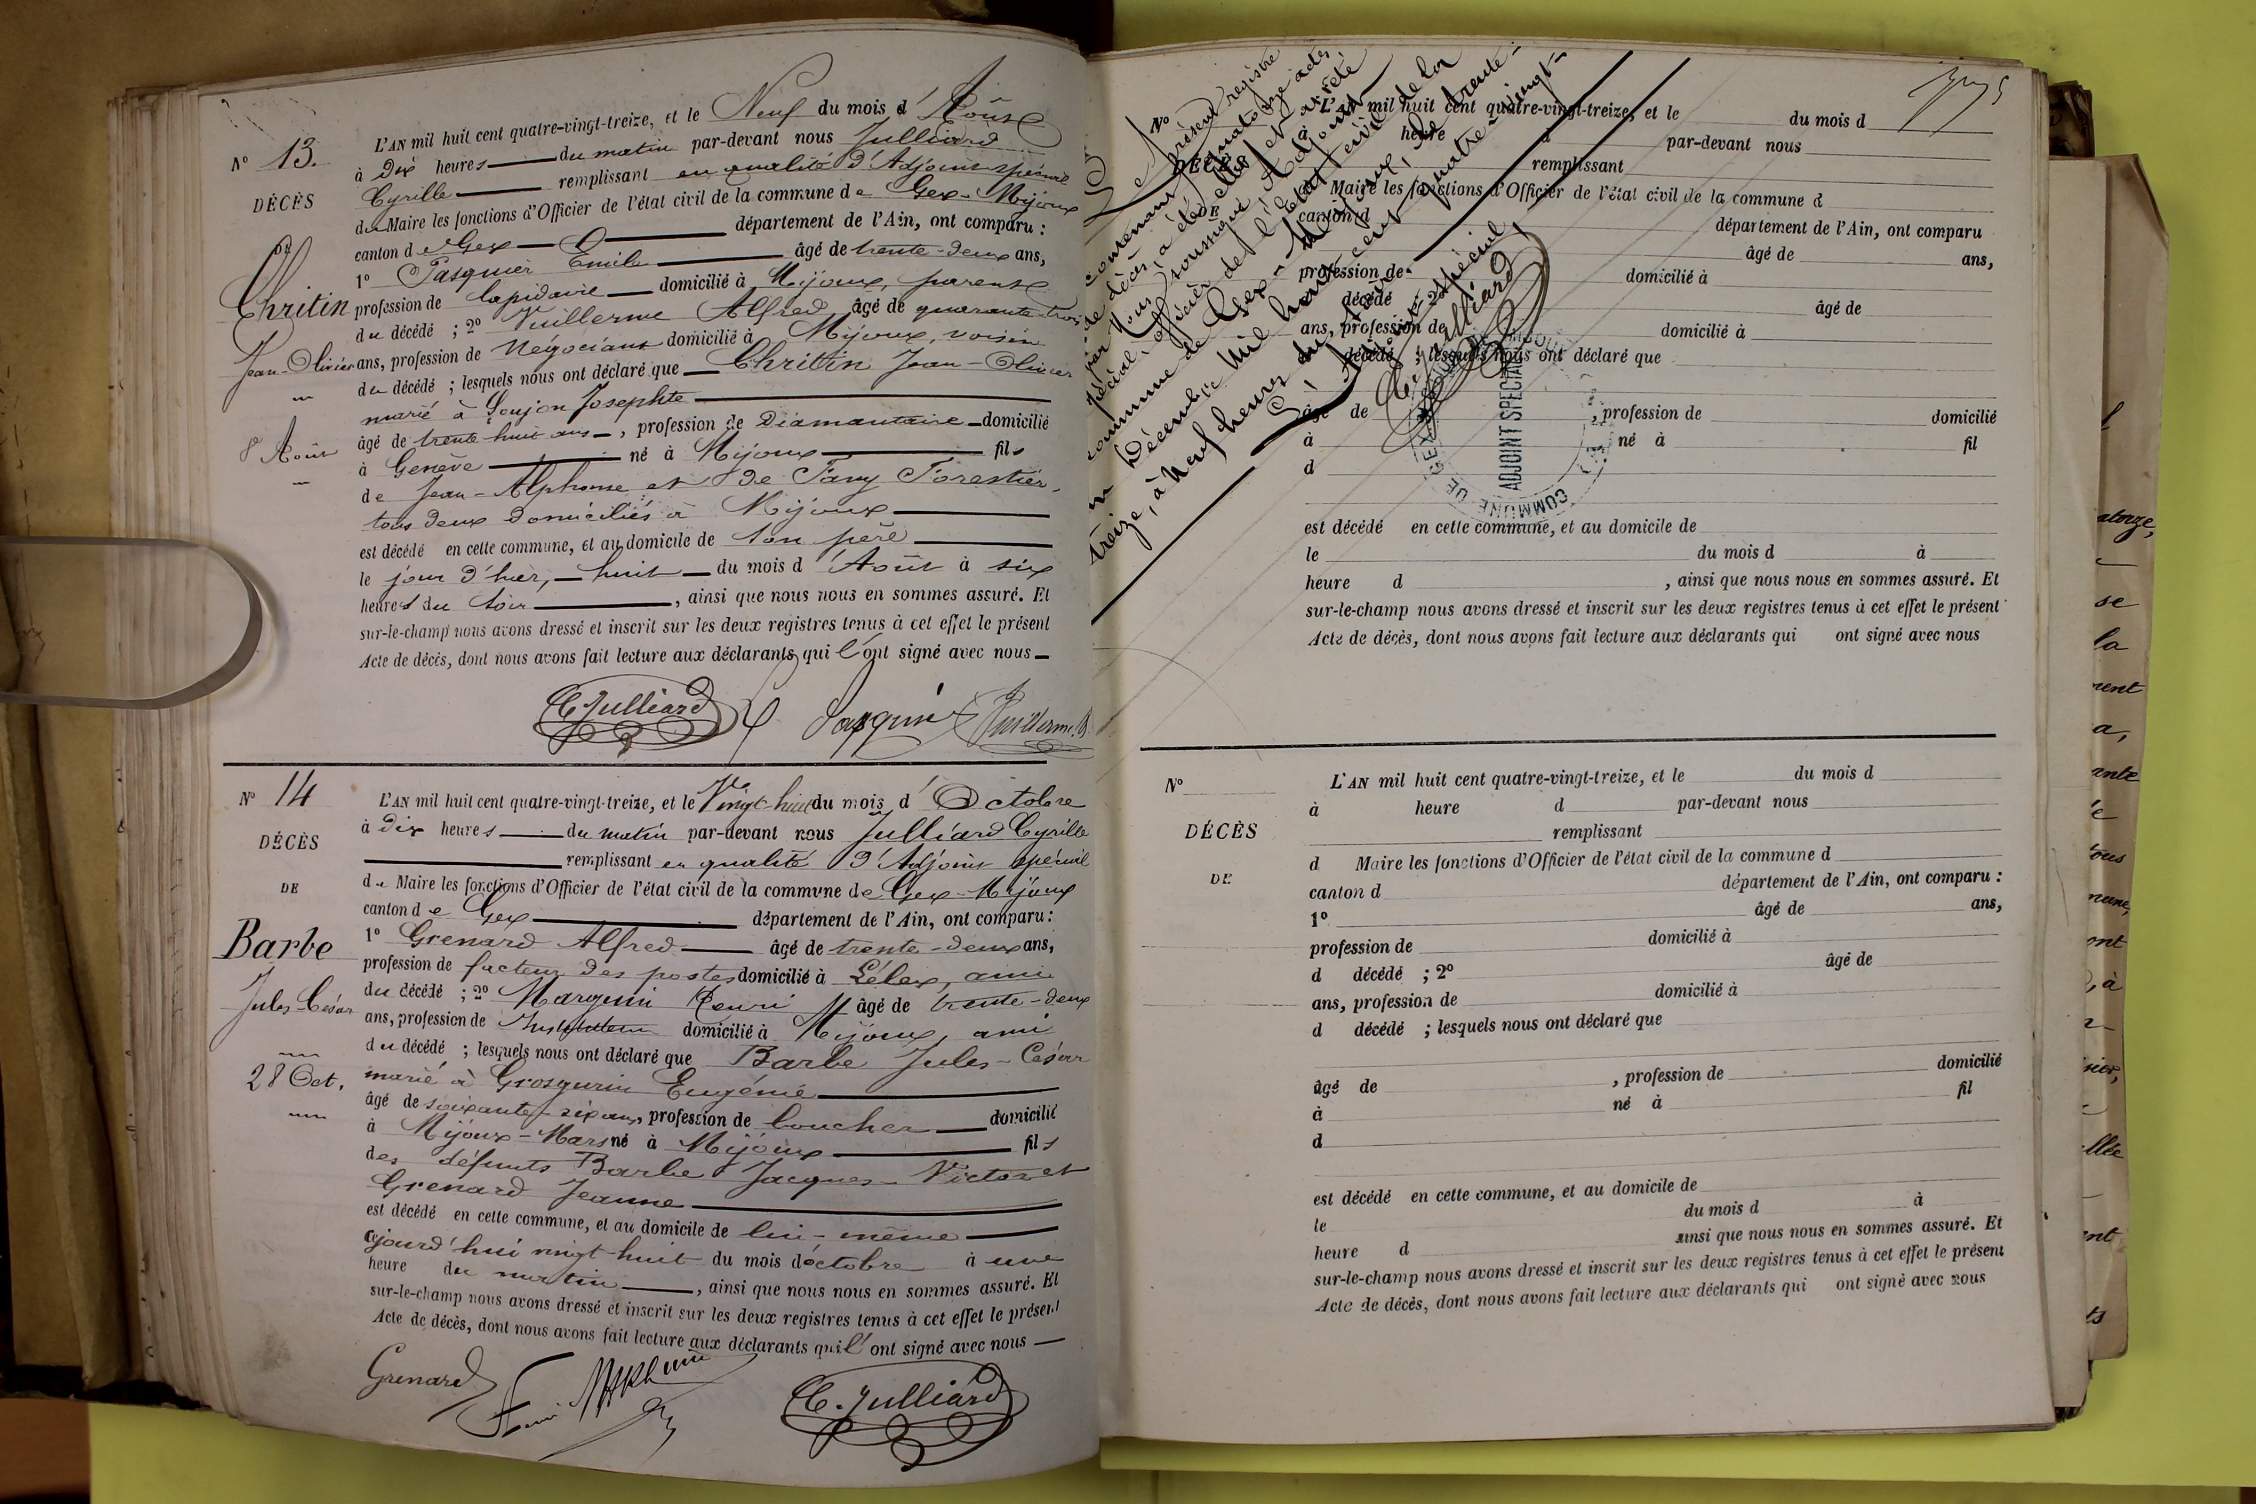 N° 13.
DÉCÈS
DE
Chritin
Jean-Olivier
8 Août
L'AN mil huit cent quatre-vingt-treize, et le Neuf du mois d'Août
à Dix heures du matin par-devant nous Julliard
Cyrille remplissant en qualité d'Adjoint spécial
du Maire les fonctions d'Officier de l'état civil de la commune de Gex-Mijoux
canton de Gex département de l'Ain, ont comparu :
1° Pasquier Emile âgé de trente-deux ans,
profession de lapidaire domicilié à Mijoux, parent
du décédé ; 2° Vuillerme Alfred âgé de quarante-trois
ans, profession de Négociant domicilié à Mijoux, voisin
du décédé ; lesquels nous ont déclaré que Chrittin Jean-Olivier
marié à Goujon Josephte
âgé de trente-huit ans, profession de Diamantaire domicilié
à Genève né à Mijoux fils
de Jean-Alphonse et de Fany Forestier,
tous deux domiciliés à Mijoux
est décédé en cette commune, et au domicile de son père
le jour d'hier, huit du mois d'Août à six
heures du soir, ainsi que nous nous en sommes assuré. Et
sur-le-champ nous avons dressé et inscrit sur les deux registres tenus à cet effet le présent
Acte de décès, dont nous avons fait lecture aux déclarants qui l'ont signé avec nous
C. Julliard Pasquier Vuillerme A
N° 14
DÉCÈS
DE
Barbe
Jules César
28 Oct.
L'AN mil huit cent quatre-vingt-treize, et le Vingt-huit du mois d'Octobre
à Dix heures du matin par-devant nous Julliard Cyrille
remplissant en qualité d'Adjoint spécial
du Maire les fonctions d'Officier de l'état civil de la commune de Gex-Mijoux
canton de Gex département de l'Ain, ont comparu :
1° Grenard Alfred âgé de trente-deux ans,
profession de facteur des postes domicilié à Lélex, ami
du décédé ; 2° Marguin Henri âgé de trente-deux
ans, profession de Instituteur domicilié à Mijoux, ami
du décédé ; lesquels nous ont déclaré que Barbe Jules-César
marié à Grosgurin Eugénie
âgé de soixante-six ans, profession de boucher domicilié
à Mijoux-Mars né à Mijoux fils
des défunts Barbe Jacques-Victor et
Grenard Jeanne
est décédé en cette commune, et au domicile de lui-même
ajourd'hui vingt-huit du mois d'octobre à une
heure du matin, ainsi que nous nous en sommes assuré. Et
sur-le-champ nous avons dressé et inscrit sur les deux registres tenus à cet effet le présent
Acte de décès, dont nous avons fait lecture aux déclarants qui l'ont signé avec nous
Grenard Henri C. Julliard
présent registre
contenant quatorze actes
de décès, a été clos et arrêté
par Nous, soussigné, Adjoint
spécial, officier de l'état civil de la
commune de Gex-Mijoux, le trente-
un Décembre mil huit cent quatre-vingt-
treize, à Neuf heures du soir.
L'Adjoint spécial,
C. Julliard
COMMUNE DE GEX
ADJOINT SPECIAL
N°
DÉCÈS
DE
L'AN mil huit cent quatre-vingt-treize, et le du mois d
à heure d par-devant nous
remplissant
Maire les fonctions d'Officier de l'état civil de la commune d
canton d département de l'Ain, ont comparu
âgé de ans,
profession de domicilié à
décédé ; 2° âgé de
ans, profession de domicilié à
décédé ; lesquels nous ont déclaré que
âgé de , profession de domicilié
à né à fil
d
est décédé en cette commune, et au domicile de
le du mois d à
heure d , ainsi que nous nous en sommes assuré. Et
sur-le-champ nous avons dressé et inscrit sur les deux registres tenus à cet effet le présent
Acte de décès, dont nous avons fait lecture aux déclarants qui ont signé avec nous
N°
DÉCÈS
DE
L'AN mil huit cent quatre-vingt-treize, et le du mois d
à heure d par-devant nous
remplissant
d Maire les fonctions d'Officier de l'état civil de la commune d
canton d département de l'Ain, ont comparu :
1° âgé de ans,
profession de domicilié à
d décédé ; 2° âgé de
ans, profession de domicilié à
d décédé ; lesquels nous ont déclaré que
âgé de , profession de domicilié
à né à fil
d
est décédé en cette commune, et au domicile de
le du mois d à
heure d ainsi que nous nous en sommes assuré. Et
sur-le-champ nous avons dressé et inscrit sur les deux registres tenus à cet effet le présent
Acte de décès, dont nous avons fait lecture aux déclarants qui ont signé avec nous